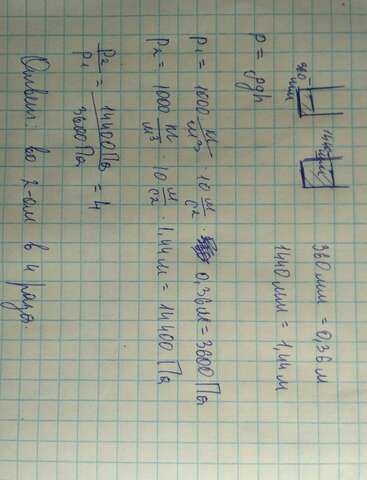 360 мм
1440 мм
360 мм = 0,36 м
1440 мм = 1,44 м
p = ρgh
P₁ = 1000 кг/м³ · 10 м/с² · 0,36 м = 3600 Па
P₂ = 1000 кг/м³ · 10 м/с² · 1,44 м = 14400 Па
P₂/P₁ = 14400 Па/3600 Па = 4
Ответ: во 2-ом в 4 раза.